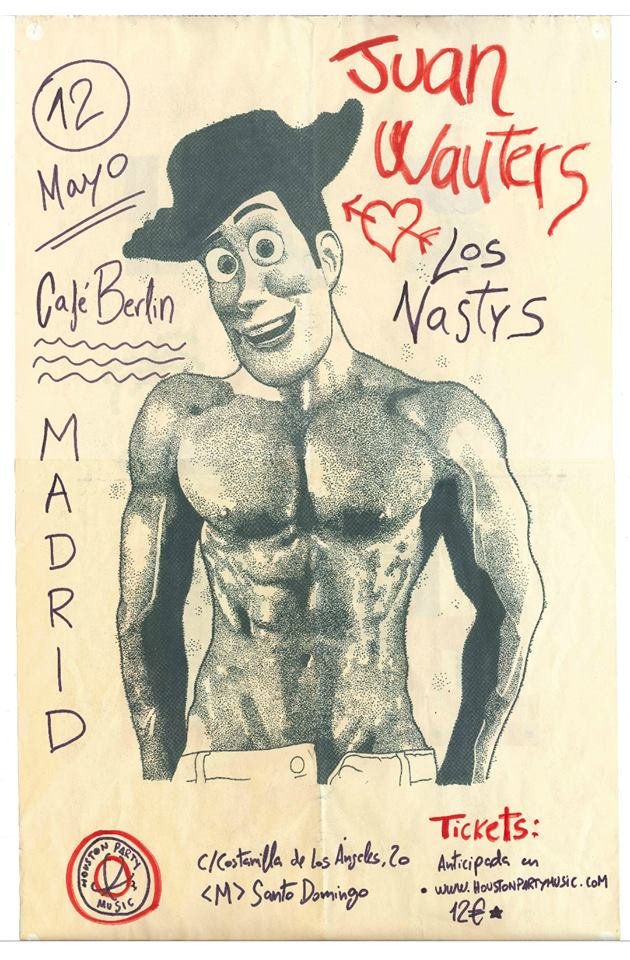 12
Mayo
Café Berlin
MADRID
Juan
Wauters
Los
Nastys
HOUSTON PARTY
MUSIC
C/Costanilla de Los Ángeles, 20
<M> Santo Domingo
Tickets:
Anticipada en
• WWW.HOUSTONPARTYMUSIC.COM
12€ ★